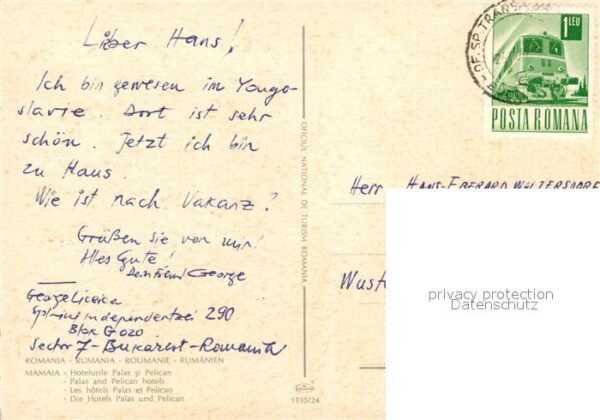 Liber Hans!
Ich bin gewesen im Yougo-
slavie. Dort ist sehr
schön. Jetzt ich bin
zu Haus.
Wie ist nach Vakanz?
Grüßen sie von mir!
Alles Gute!
Dein Freund George
George
Splaiul independentzei 290
Blok G 020
Sector 7 - Bukarest - Romania
ROMANIA - RUMANIA - ROUMANIE - RUMÄNIEN
MAMAIA - Hotelurile Palas şi Pelican
- Palas and Pelican hotels
- Les hôtels Palas et Pelican
- Die Hotels Palas und Pelican
OFICIUL NATIONAL DE TURISM ROMANIA
1135/24
OF. SP. TRANS
1 LEU
POSTA ROMANA
Herr Hans-Eberard Woltersdorf
Wust
privacy protection
Datenschutz